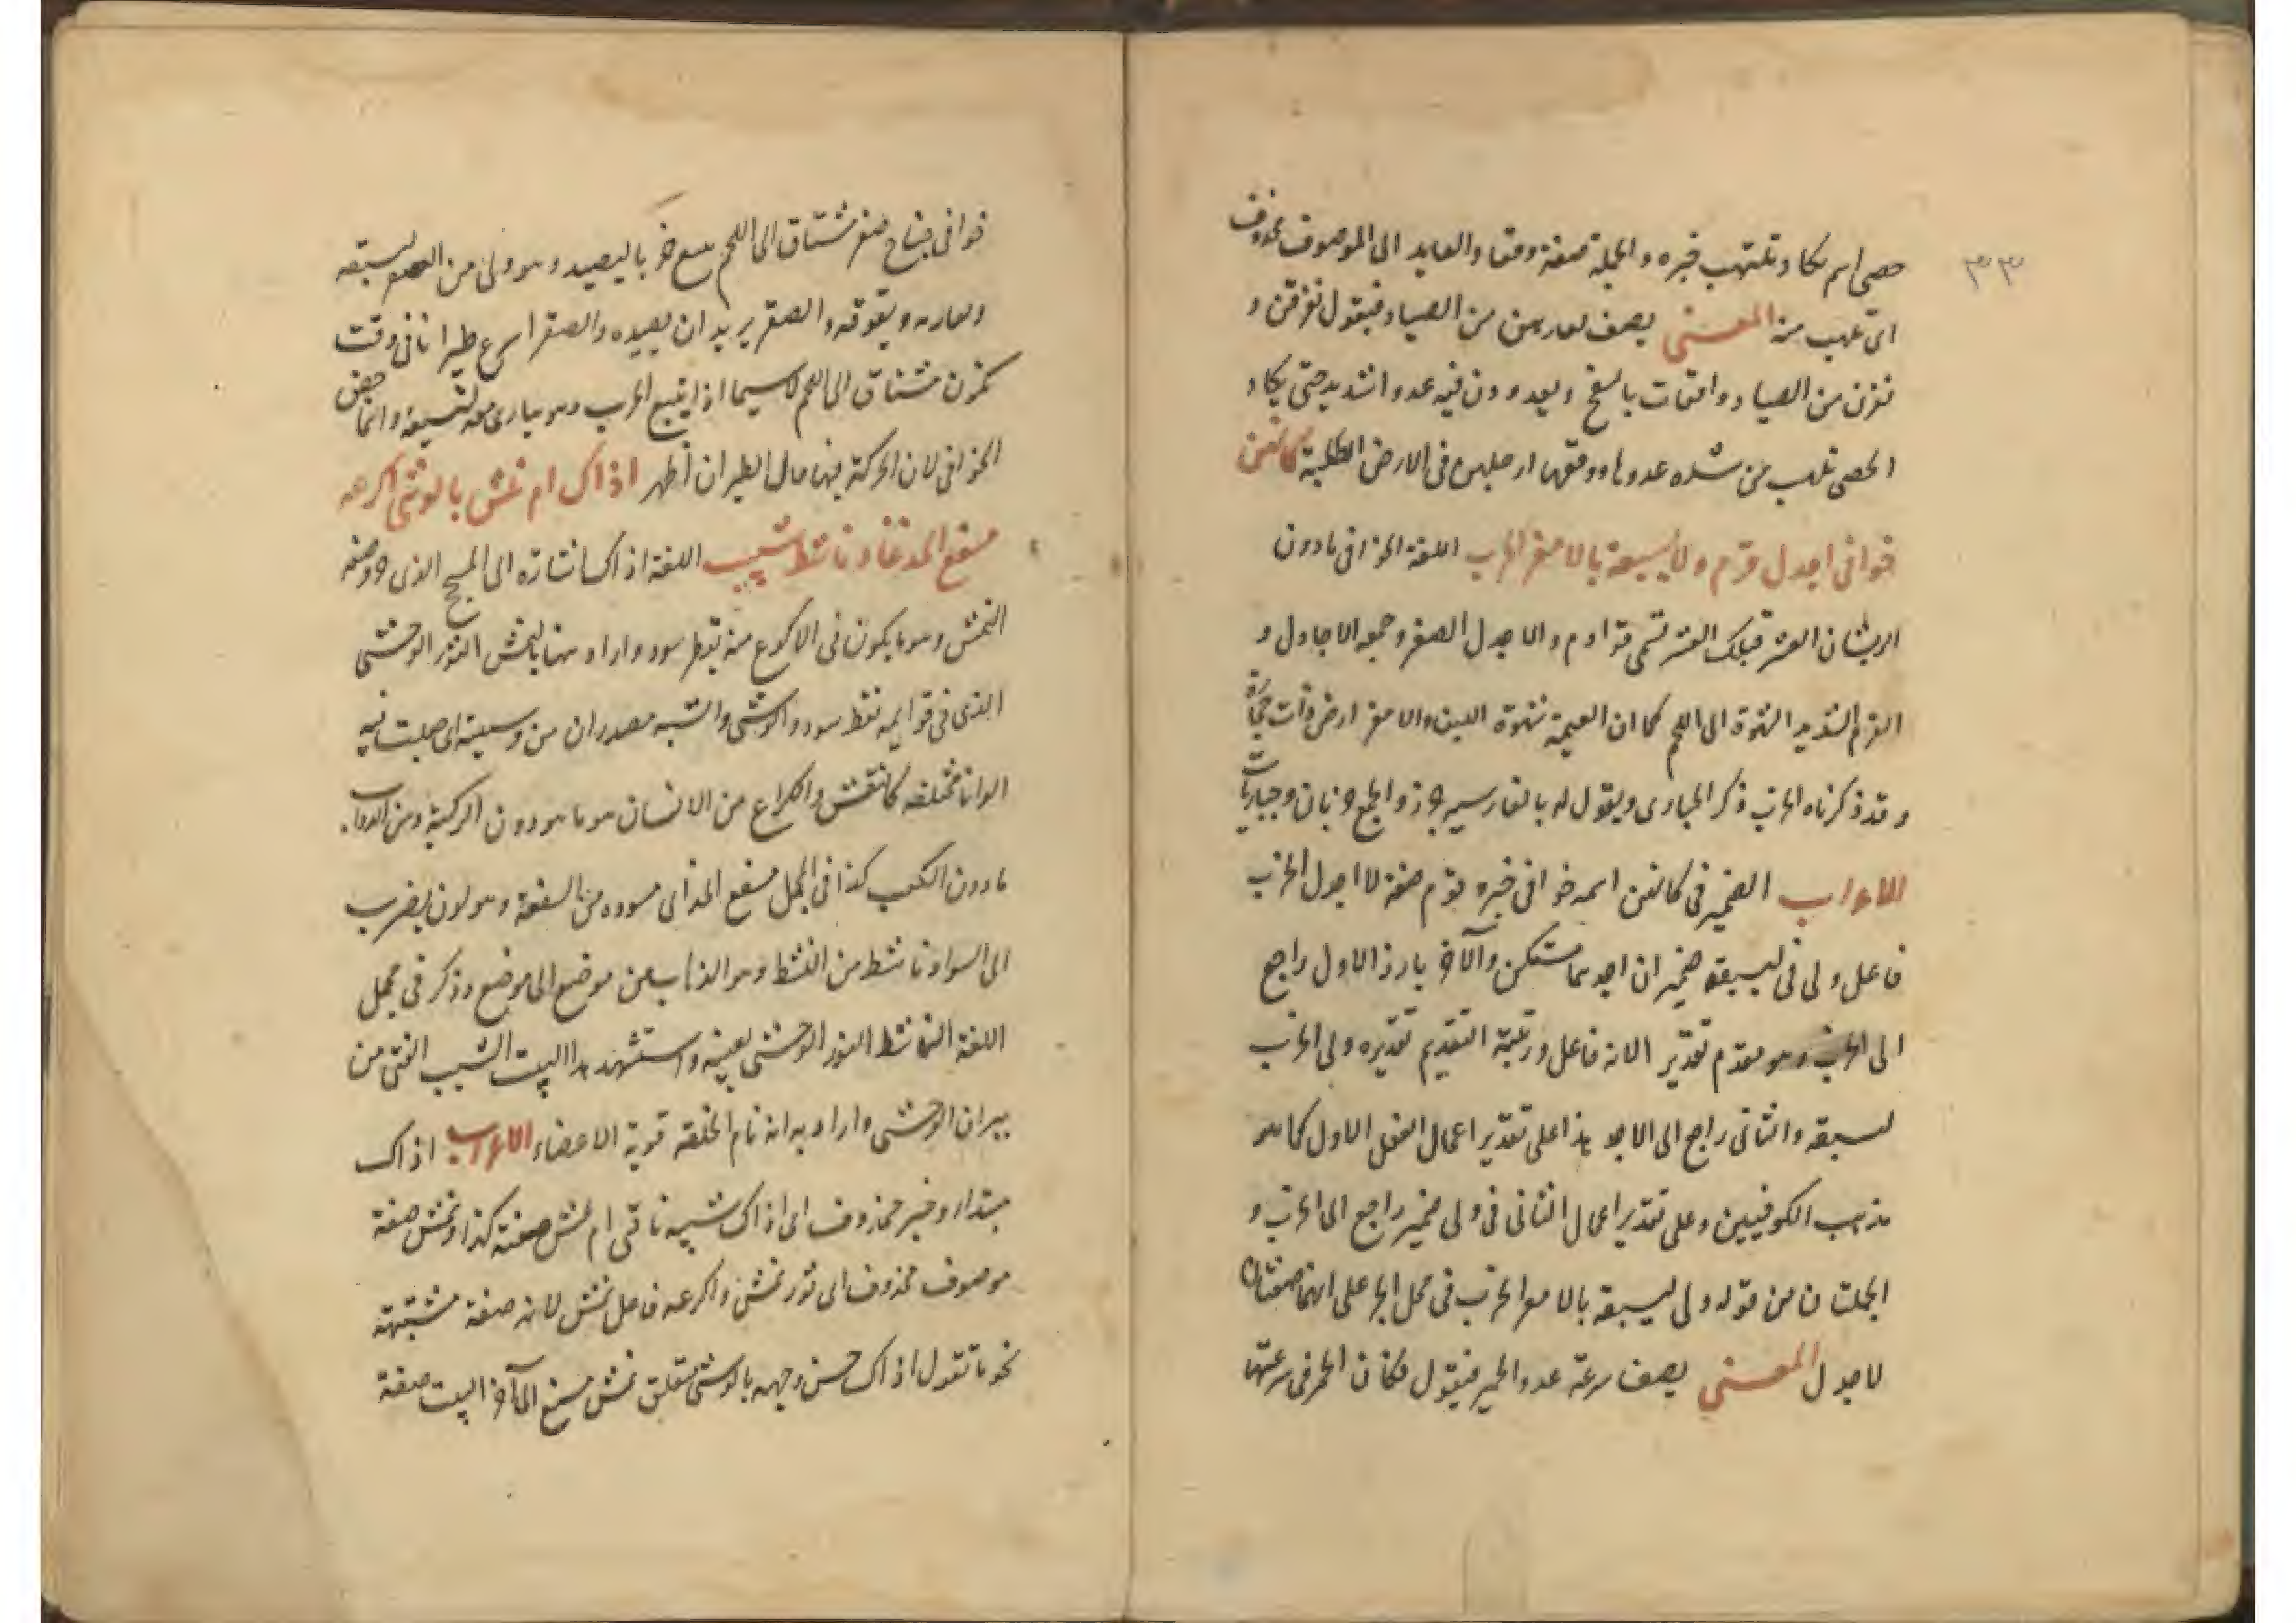 ٣٣
حصى اسم يكاد وتلتهب خبره والجملة صفة وقعا والعايد الى الموصوف محذوف
اى تلهب منه المعنى يصف لعار بهن من الصياد فيقول تفرقن و
نفرن من الصياد وافتات بالسفح ويعدو ون فيه عدوا شديد حتى يكاد
الحصى تلهب من شده عدوها ووقعها ارجلهن فى الارض الصلبية كانهن
خوافى اجدل قرم ولا ليسبقه بالامعز الخرب اللغة الخوافى مادون
الريشات العشر فتلك العشر تسمى قوادم والاجدل الصقر وجمعه الاجادل و
القرم الشديد الشهوة الى اللحم كما ان العيمة شهوة اللبن والامعز ارض ذات حجارة
وقد ذكرناه الخرب ذكر الحبارى ويقول له بالفارسيه جرز والجمع خربان وحباريات
الاعراب الضمير فى كانهن اسمه خوافى خبره وقرم صفة لا اجدل الخرب
فاعل ولى فى ليسبقه ضميران احدهما مستكن والآخر بارز الاول راجع
الى الخرب وهو مقدم تقدير الانه فاعل ورتبة التقديم تقديره ولى الخرب
ليسبقه والثانى راجع الى الاجد هذا على تقدير اعمال الفعل الاول كما هو
مذهب الكوفيين وعلى تقدير اعمال الثانى فى ولى ضمير راجع الى الخرب و
الجملتان من قوله ولى ليسبقه بالامعز الخرب فى محل الجر على انهما صفتان
لاجدل المعنى يصف سرعة عدو الحمير فيقول فكان الحمر فى سرعتها
خوافى جناح صقر مشتاق الى اللحم يتبع خربا ليصيد وهو ولى من الصقر ليسبقه
ويفوقه والصقر يريد ان يصيده والصقر اسرع طيرانا فى وقت
تكون مشتاق الى اللحم لاسيما اذا يتبع الخرب وهو يبارى معه لتسبقه وانما خص
الخوافى لان الحركة فيها حال الطيران اظهر اذاك ام نمش بالوشى اكرعه
مسفع الخد غاد ناشط شبب اللغة اذاك اشارة الى المسحج الذى وصفه
النمش وهو ما يكون فى الاكرع منه نقط سود واراد هنا بالنمش الثور الوحشى
الذى فى قوايمه نقط سود والوشى والشيه مصدران من وشيته اى جعلت فيه
الوانا مختلفه كالنقش والكراع من الانسان هو ما هو دون الركبة ومن الدواب
مادون الكعب كذا فى المجمل مسفع الخد اى مسوده من السفعة وهو لون يضرب
الى السواد ناشط من النشط وهو الذاهب من موضع الى موضع وذكر فى مجمل
اللغة الناشط الثور الوحشى بعينه واستشهد بهذا البيت الشبب الفتى من
ثيران الوحشى واراد به انه تام الخلقه قوية الاعضاء الاعراب اذاك
مبتداء وخبر محذوف اى اذاك شبيه ناقتى ام نمش صفته كذا ونمش صفة
موصوف محذوف اى ثور نمش واكرعه فاعل نمش لانه صفة مشبهة
نحو ما تقول اذاك حسن وجهه بالوشى متعلق نمش مسفع الى آخر البيت صفة